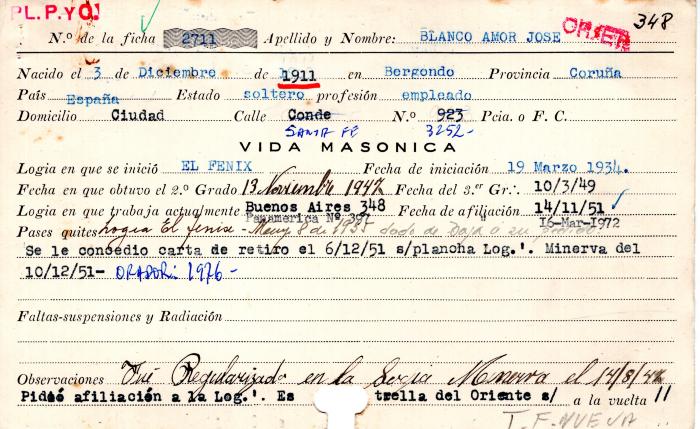 PL.P.YO.
348
N.º de la ficha 2711 Apellido y Nombre: BLANCO AMOR JOSE
Nacido el 3 de Diciembre de 1911 en Bergondo Provincia Coruña
País España Estado soltero profesión empleado
Domicilio Ciudad Calle Conde N.º 923 Pcia. o F. C.
SANTA FE 3252-
VIDA MASONICA
Logia en que se inició EL FENIX Fecha de iniciación 19 Marzo 1934.
Fecha en que obtuvo el 2.º Grado 13 Noviembre 1947 Fecha del 3.er Gr.: 10/3/49
Logia en que trabaja actualmente Buenos Aires 348 Fecha de afiliación 14/11/51
Panamerica Nº 397 16-Mar-1972
Pases quites Logia El fenix - 8 de 1937 dado de Baja a su
Se le concedio carta de retiro el 6/12/51 s/plancha Log.'. Minerva del
10/12/51- ORADOR: 1976-
Faltas-suspensiones y Radiación
Observaciones Fué Regularizado en la Logia Minerva el 14/8/42
Pidió afiliación a la Log.'. Es trella del Oriente s/ a la vuelta //
T. F. NUEVA